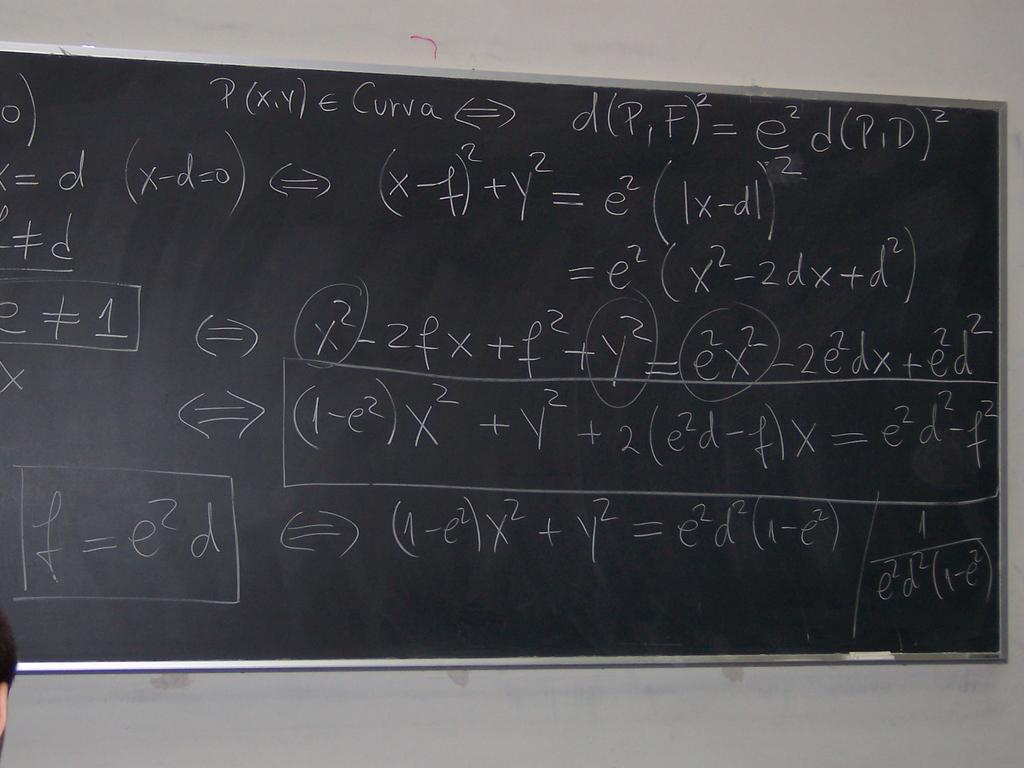 0) P(x,y) ∈ Curva ⇔ d(P,F)² = e² d(P,D)²
x = d (x-d=0) ⇔ (x-f)² + y² = e² (|x-d|)²
≠ d = e² (x² - 2dx + d²)
e ≠ 1 ⇔ x² - 2fx + f² + y² = e²x² - 2e²dx + e²d²
x ⇔ (1-e²)x² + y² + 2(e²d-f)x = e²d² - f²
f = e²d ⇔ (1-e²)x² + y² = e²d²(1-e²) / 1/(e²d²(1-e²))